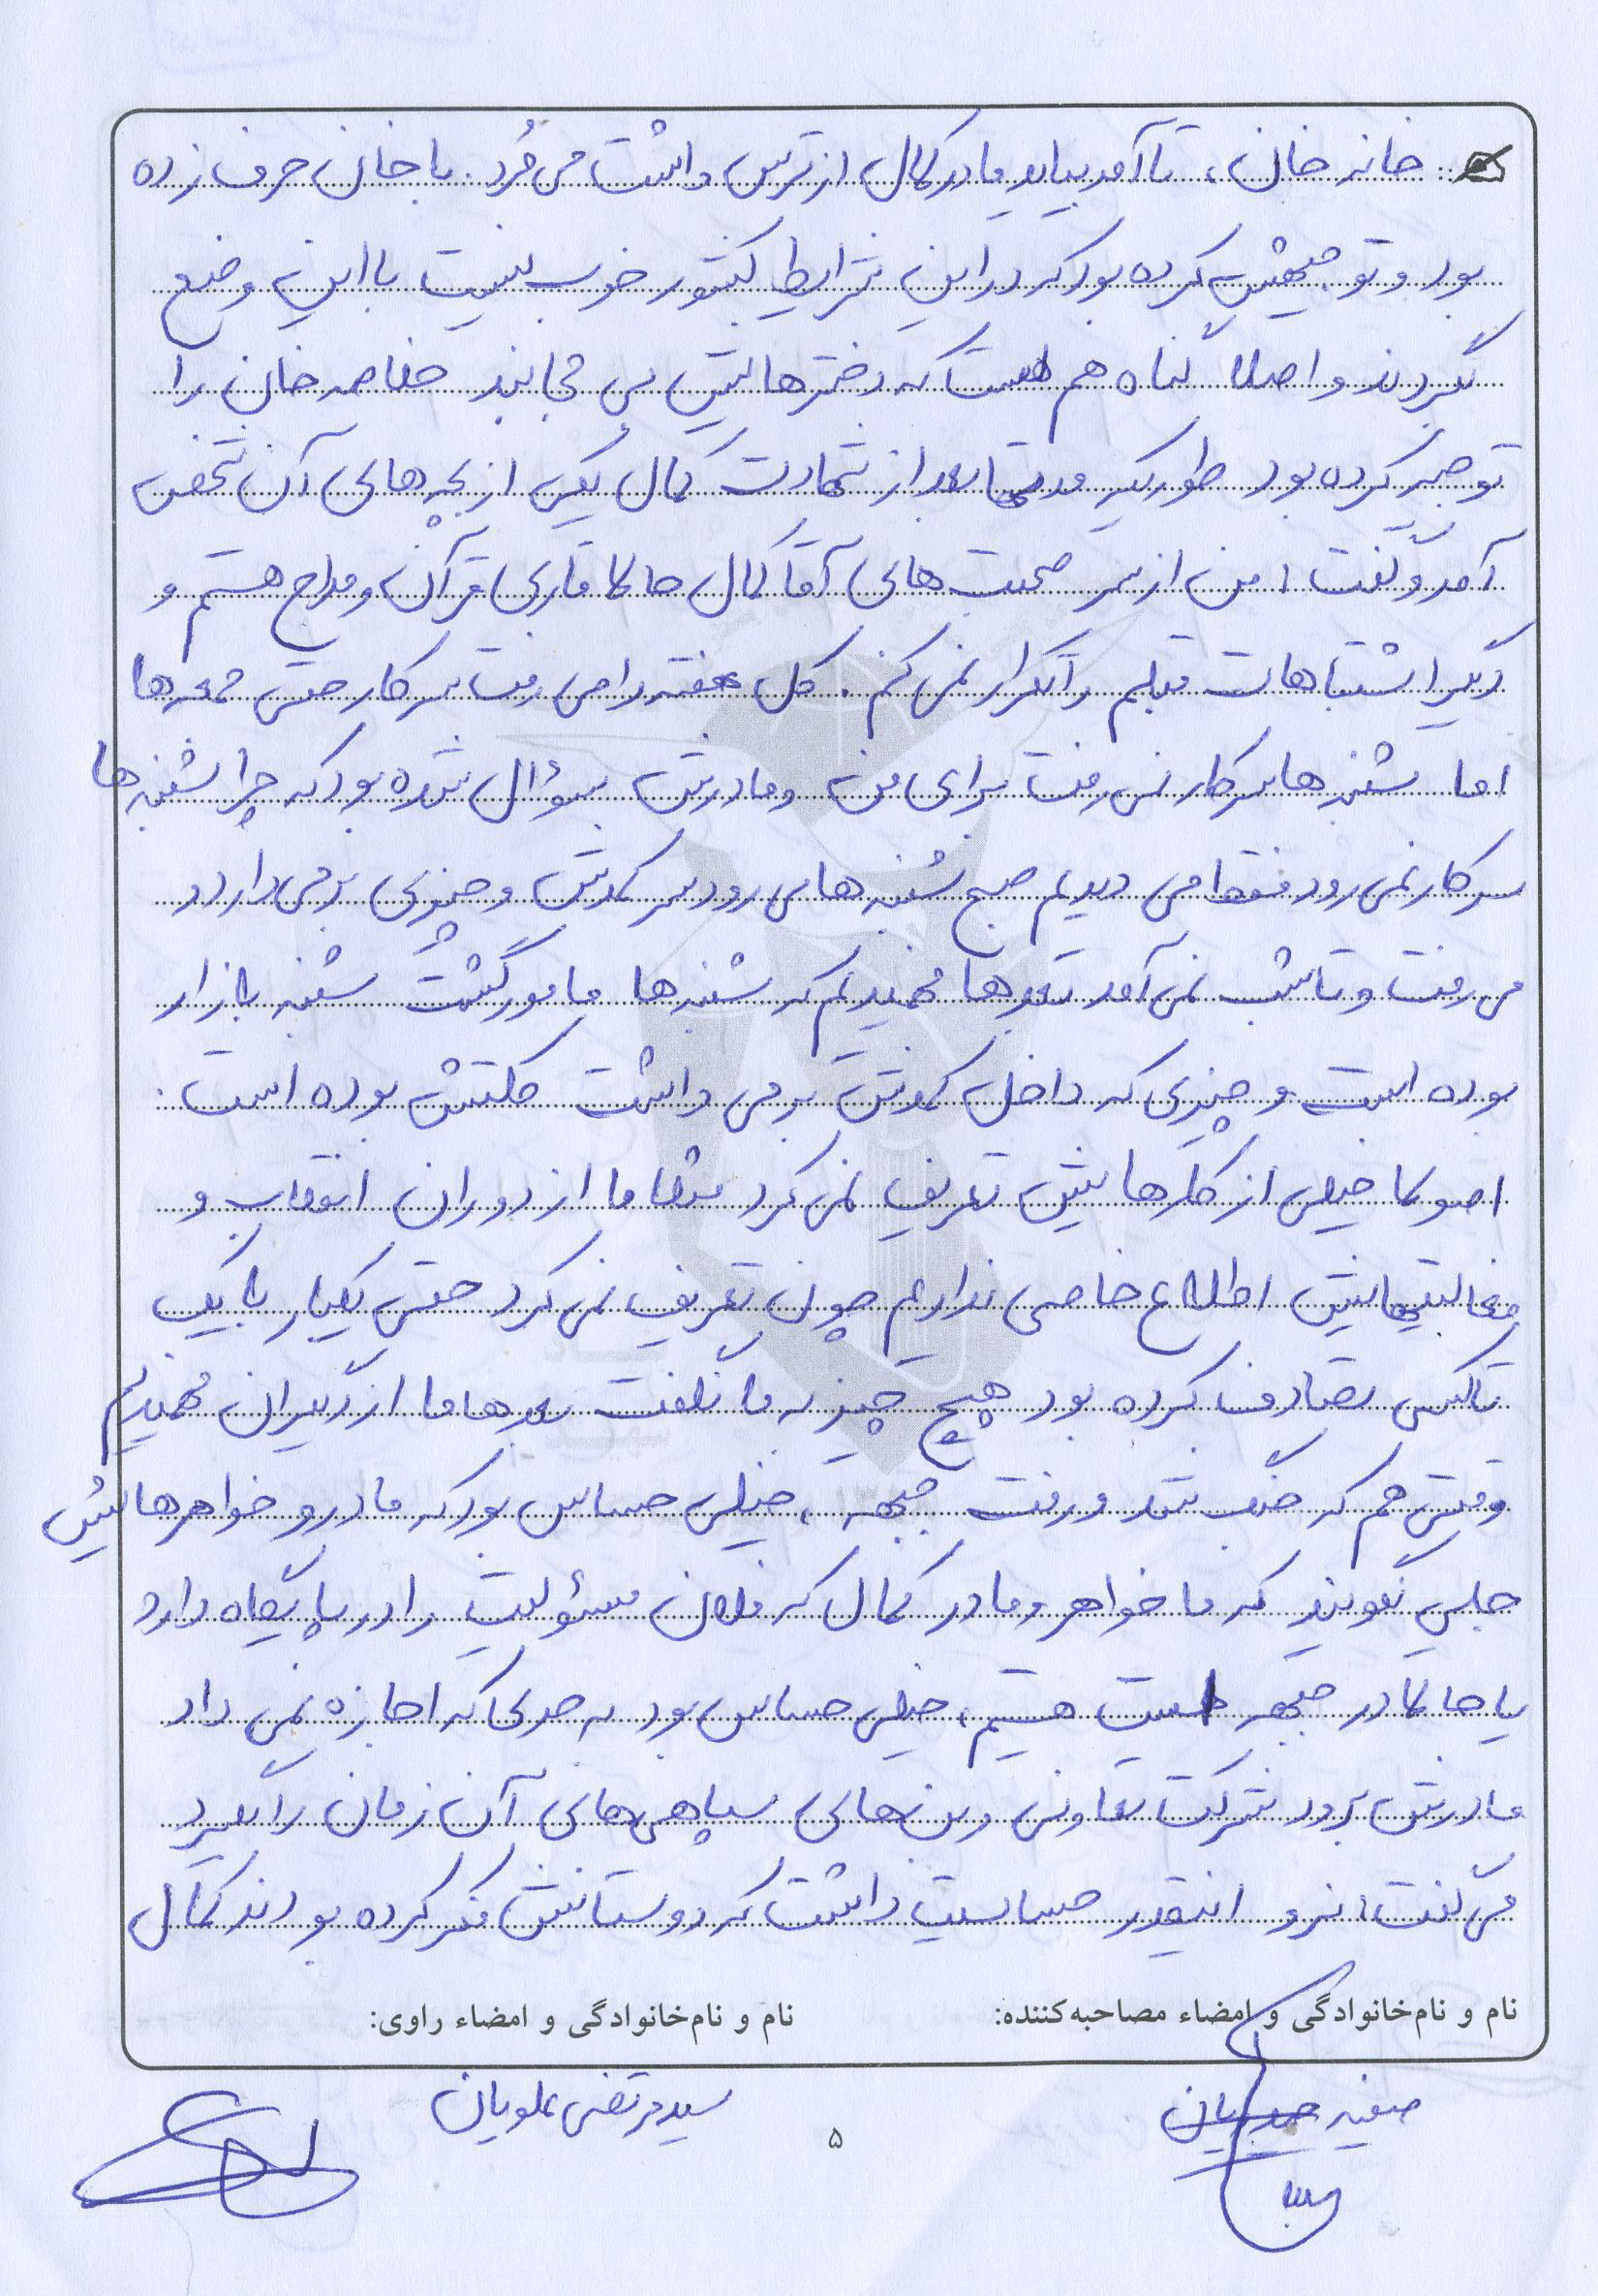 خانه خان، تا آمد بیاید مادر کمال از ترس داشت می‌مُرد. با خان حرف زده
بود و توجیهش کرده بود که در این شرایط کشور خوب نیست با این وضع
بگردند و اصلاً گناه هم هست که دخترهایش بی حجابند خلاصه خان را
توجیه کرده بود طوریکه مدتها بعد از شهادت کمال یکی از بچه‌های آن شخص
آمد و گفت: من از سر صحبت‌های آقا کمال حالا قاری قرآن و مداح هستم و
دیگر اشتباهات قبلم را تکرار نمی‌کنم. کل هفته را می‌رفت سر کار حتی جمعه‌ها
اما شنبه‌ها سر کار نمی‌رفت برای من و مادرش سؤال شده بود که چرا شنبه‌ها
سر کار نمی‌رود فقط می‌دیدیم صبح شنبه‌ها می‌رود سر کمدش و چیزی بر می‌دارد و
می‌رفت و تا شب نمی‌آمد بعدها فهمیدیم که شنبه‌ها مامور گشت شنبه بازار
بوده است و چیزی که داخل کمدش بر می‌داشت کلتش بوده است.
اصولاً خیلی از کارهایش تعریف نمی‌کرد مثلا ما از دوران انقلاب و
فعالیتهایش اطلاع خاصی نداریم چون تعریف نمی‌کرد حتی یکبار با یک
تاکسی تصادف کرده بود هیچ چیز به ما نگفت بعدها ما از دیگران فهمیدیم
وقتی هم که جنگ شد و رفت جبهه، خیلی حساس بود که مادر و خواهرهایش
جایی نگویند که ما خواهر و مادر کمال که فلان مسئولیت را در پایگاه دارد
یا حالا در جبهه است هستیم، خیلی حساس بود به حدی که اجازه نمی‌داد
مادرش برود شرکت تعاونی و بن‌های سپاهی‌های آن زمان را بگیرد
می‌گفت: نرو اینقدر حساسیت داشت که دوستانش فکر کرده بودند کمال
نام و نام‌خانوادگی و امضاء مصاحبه‌کننده:
نام و نام‌خانوادگی و امضاء راوی:
صفیه
سیدمرتضی علویان
۵